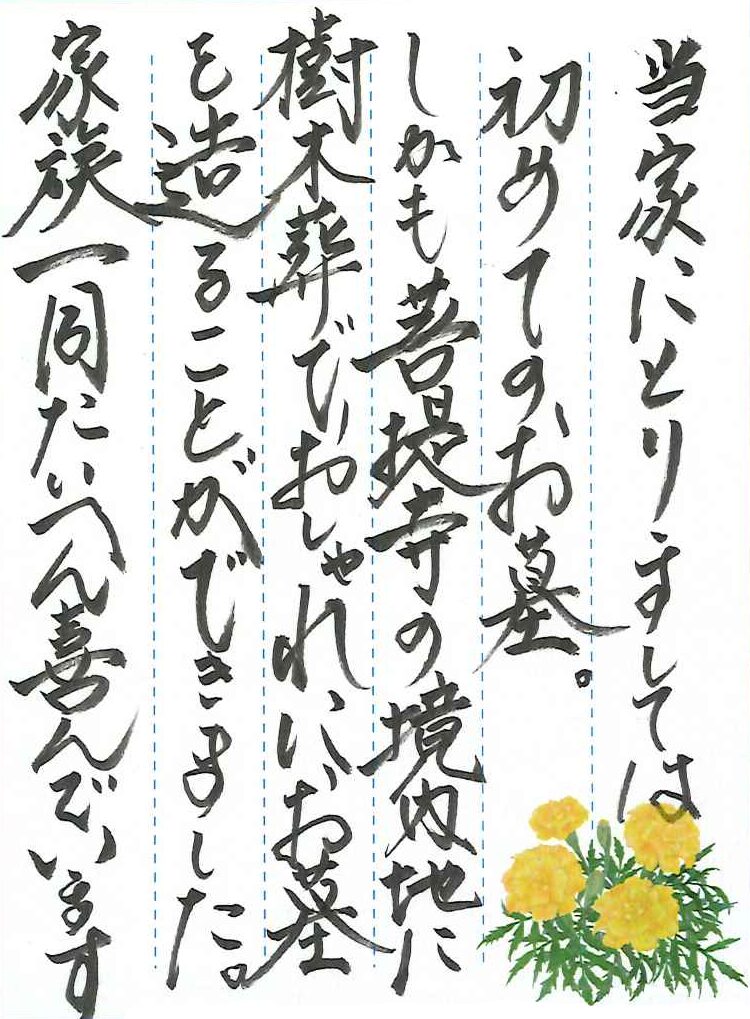 当家にとりましては
初めての、お墓。
しかも菩提寺の境内地に
樹木葬で、おしゃれに、お墓
を造ることができました。
家族一同たいへん喜んでいます